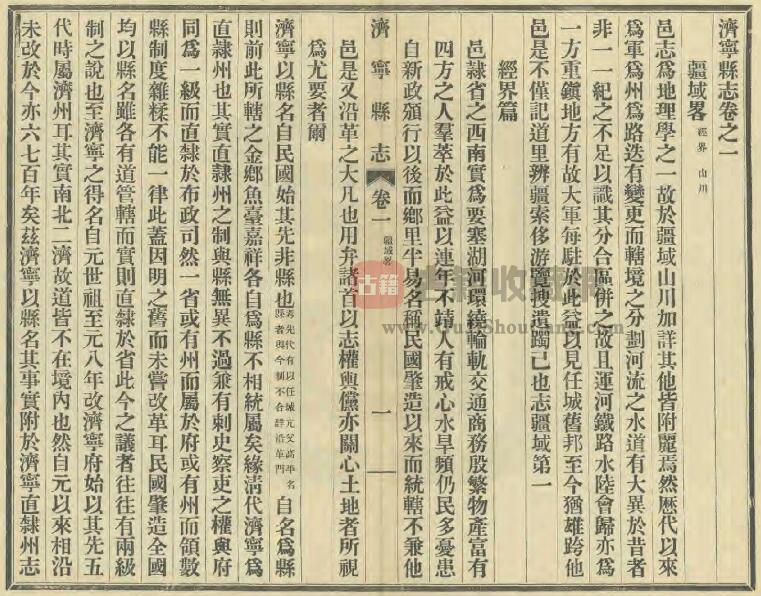 濟寧縣志卷之一
疆域畧 經界 山川
邑志爲地理學之一故於疆域山川加詳其他皆附麗焉然歷代以來
爲軍爲州爲路迭有變更而轄境之分劃河流之水道有大異於昔者
非一一紀之不足以識其分合區併之故且運河鐵路水陸會歸亦爲
一方重鎭地方有故大軍每駐於此益以見任城舊邦至今猶雄跨他
邑是不僅記道里辨疆索侈游覽搜遺躅已也志疆域第一
經界篇
邑隷省之西南實爲要塞湖河環繞輪軌交通商務殷繁物產富有
四方之人羣萃於此益以連年不靖人有戒心水旱頻仍民多憂患
自新政頒行以後而鄉里半易名稱民國肇造以來而統轄不兼他
濟寧縣志 卷一 疆域畧 一
邑是又沿革之大凡也用弁諸首以志權輿儻亦關心土地者所視
爲尤要者爾
濟寧以縣名自民國始其先非縣也 先代有以任城元父高平名縣者與今制不合詳沿革門 自名爲縣
則前此所轄之金鄉魚臺嘉祥各自爲縣不相統屬矣緣淸代濟寧爲
直隷州也其實直隷州之制與縣無異不過兼有刺史察吏之權與府
同爲一級而直隷於布政司然一省或有州而屬於府或有州而領數
縣制度雜糅不能一律此蓋因明之舊而未嘗改革耳民國肇造全國
均以縣名雖各有道管轄而實則直隷於省此今之議者往往有兩級
制之說也至濟寧之得名自元世祖至元八年改濟寧府始以其先五
代時屬濟州耳其實南北二濟故道皆不在境內也然自元以來相沿
未改於今亦六七百年矣茲濟寧以縣名其事實附於濟寧直隷州志
古籍
古籍收藏网